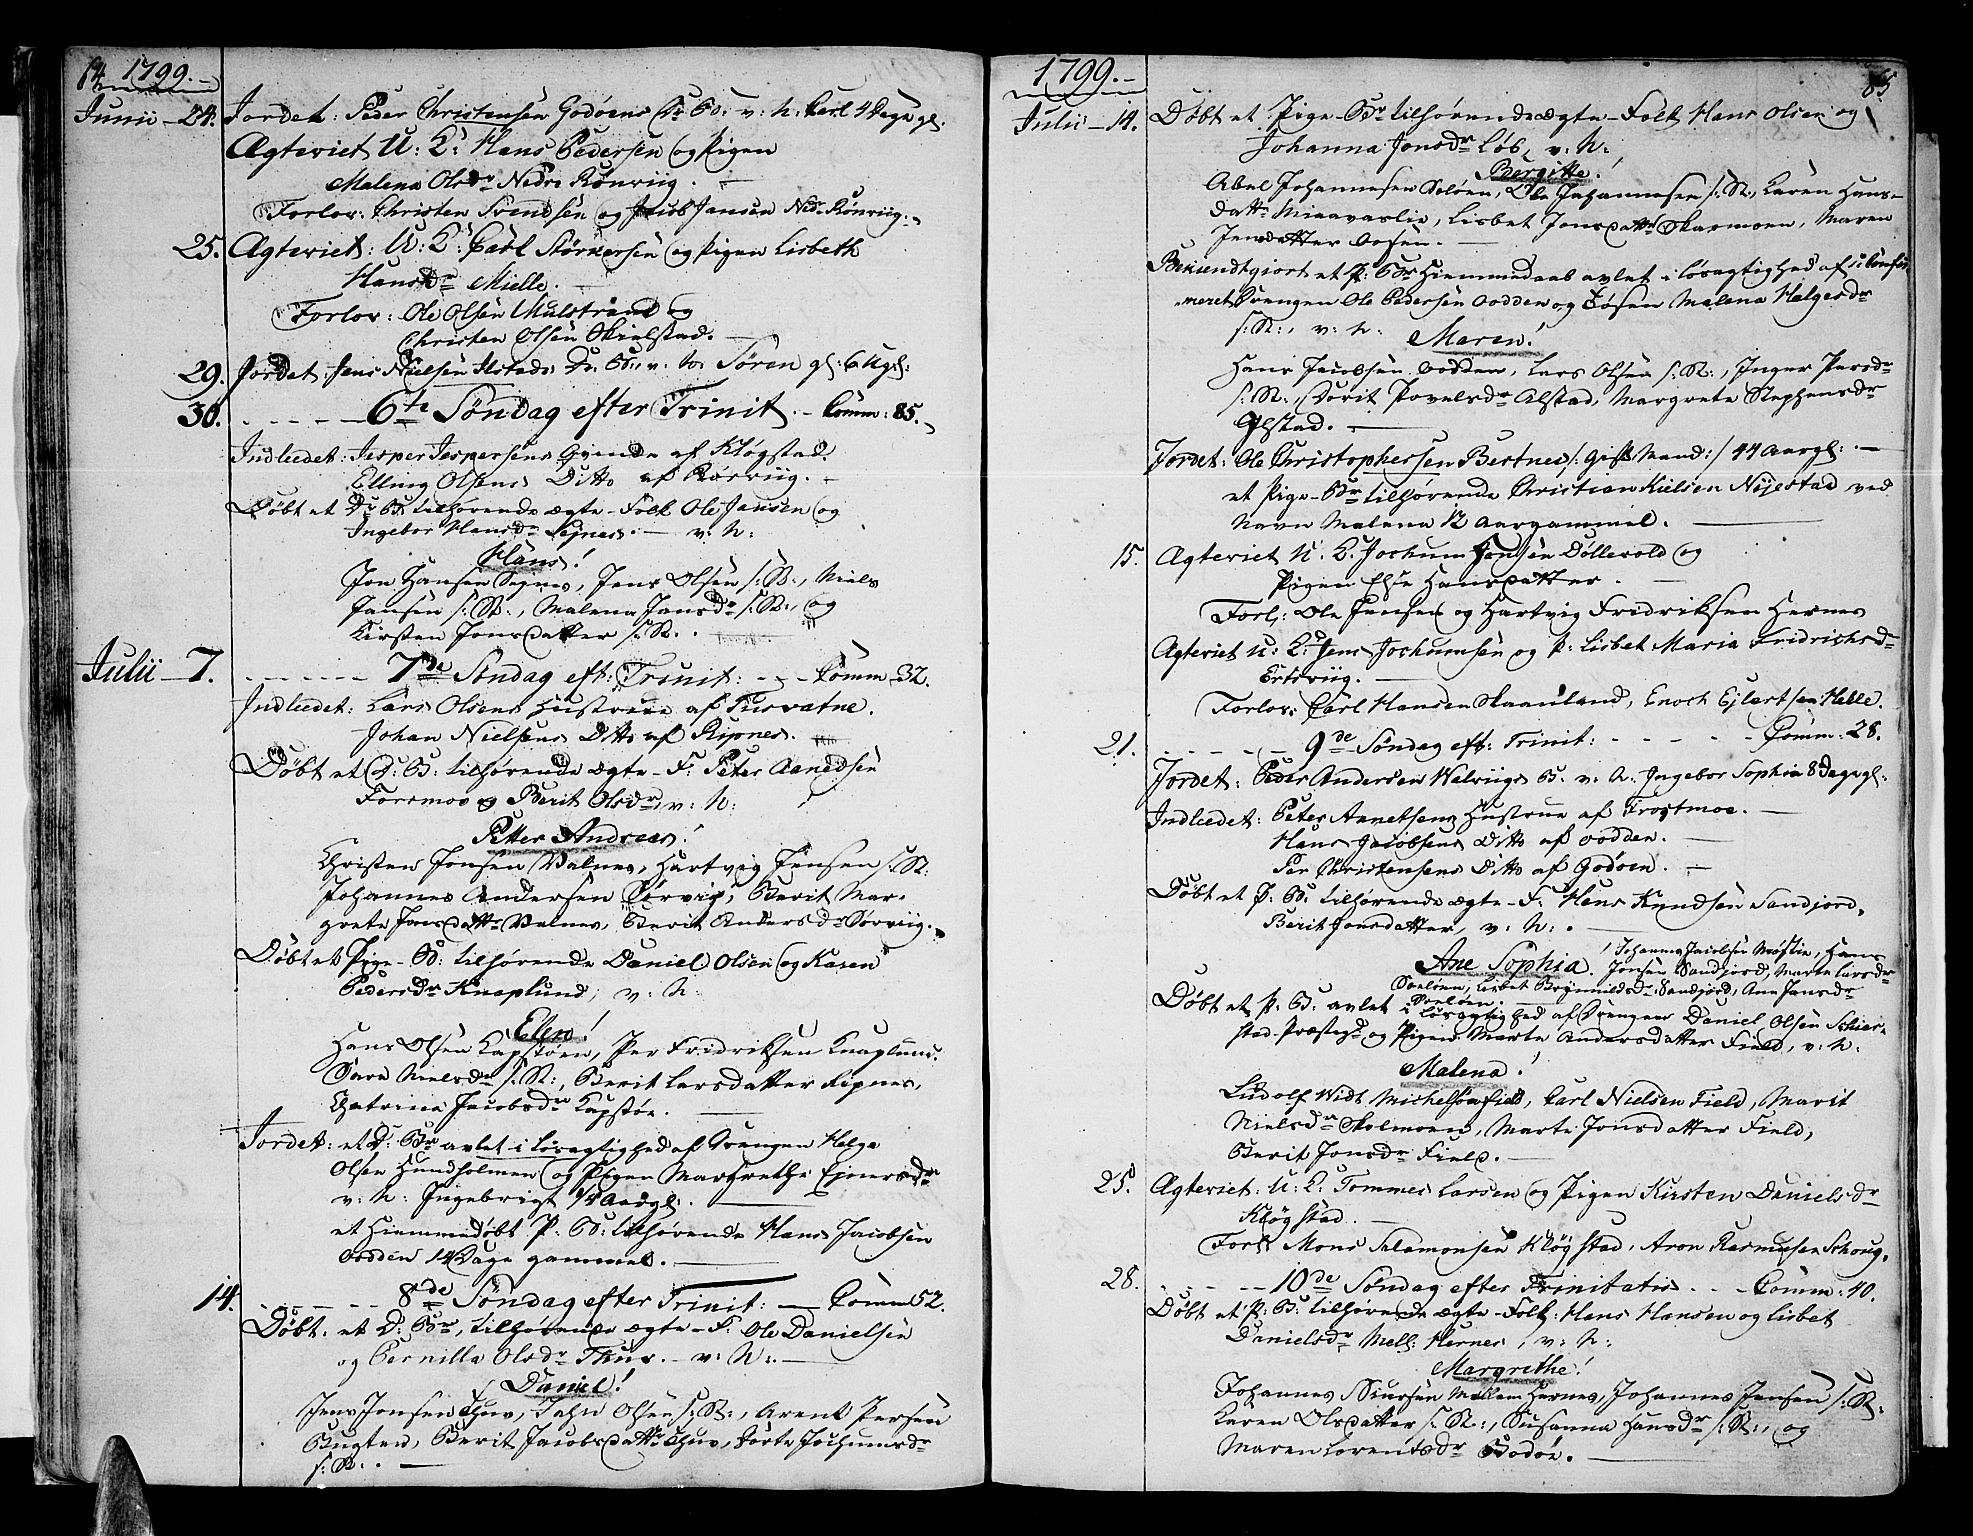 64 1799.
Junii 24. Jordet: Peder Christensen Godøens D: B: v: N: Carl 4 Dage gl.
Ægteviet U: K: Hans Pedersen og Pigen
Malena Olsdr Nedre Rønviig.
Forlov: Christen Svendsen og Jacob Jansen Ned: Rønviig.
25. Ægteviet: U: K: Carl Størkersen og Pigen Lisbeth
Hansdr Mielle.
Forlov: Ole Olsen Mulstrand og
Christen Olsen Skielstad.
29. Jordet: Jens Nielsen Alstads D: B: v: N: Søren gl: 6 Ug:
30. 6te Søndag efter Trinit. Comm: 85.
Indledet: Jesper Jespersens Qvinde af Kløgstad.
Elling Olsens Ditto af Rørviig.
Døbt et D: B: tilhørende Ægte-Folk Ole Jansen og
Ingebor Hansdr Seines. v: N:
Hans!
Jon Hansen Segnes, Jens Olsen s: St:, Niels
Jansen s: St:, Malena Jansdr s: St:, og
Kirsten Jonsdatter s: St:.
Julii 7. 7de Søndag eft: Trinit: Comm 32.
Indledet: Lars Olsens Hustrue af Tusvatne.
Johan Nielsens Ditto af Ripnes.
Døbt et D: B: tilhørende Ægte-F: Peter Anedsen
Forsmoe og Berit Olsdr, v: N:
Petter Andreas!
Christen Jonsen Valnes, Hartvig Jensen s: St:
Johannes Andersen Sørviig, Berit Mar-
grete Jonsdattr Valnes, Berit Andersdr Sørviig.
Døbt et Pige-B: tilhørende Daniel Olsen og Karen
Pedersdr Knaplund, v: N:
Elen!
Hans Olsen Kapstøen, Per Fridriksen Knaplund.
Sara Nielsdr s: St:, Berit Larsdatter Ripnes,
Chatrina Jacobsdr Kapstøe.
Jordet: et D: Br avlet i Løsagtighed af Drengen Helge
Olsen Hundholmen og Pigen Margrethe Ejnersdr
v: N: Ingebrigt 1/4 Aar gl:
et Hiemmedøbt P: B: tilhørende Hans Jacobsen
Oddden 14 Dage gammel.
14. 8de Søndag efter Trinit: Comm 52.
Døbt: et D: Br, tilhørende Ægte-F: Ole Danielsen
og Pernilla Olsdr Thuv. v: N:.
Daniel!
Jens Jonsen Thuv, Jahn Olsen s: St:, Arent Persen
Bugten, Berit Jacobsdattr Thuv, Dorte Jochumsdr
s: St:.
1799. 65
Julii 14. Døbt et Pige-Br tilhørende Ægte-Folk Hans Olsen og
Johanna Jonsdr Løb, v: N:
Bergitte!
Abel Johannesen Soløen, Ole Johannesen s: St:, Karen Hans-
dattr Misvaslie, Lisbet Jonsdattr Skarmoen, Maren
Jensdatter Osen.
Bekiendtgiort et P: Br Hiemmedaab avlet i Løsagtighed af u: Confir-
meret Drengen Ole Pedersen Oddden og Tøsen Malena Helgesdr
s: St:, v: N:
Maren!
Hans Jacobsen Oddden, Lars Olsen s: St:, Inger Persdr
s: St:, Dorit Povelsdr Alstad, Margrete Stephensdr
Alstad.
Jordet: Ole Christophersen Bertnes /: gift Mand :/ 44 Aar gl:
et Pige-Br tilhørende Christian Nielsen Nyestad ved
Navn Malena 12 Aar gammel.
15. Ægteviet U: K: Jochum Jensen Døllevold og
Pigen Else Hansdatter.
Forl: Ole Jensen og Hartvig Fridriksen Hernes
Ægteviet U: K: Jens Jochumsen og P: Lisbet Maria Fridrichsdr
Ertsviig.
Forlov: Carl Hansen Skaanland, Enoch Ejlertsen Helle.
21. 9de Søndag eft: Trinit: Comm: 28.
Jordet: Peder Andersen Walviigs B. v: N: Ingebor Sophia 8 Dage gl:
Indledet: Peter Annetsens Hustrue af Frostmoe.
Hans Jacobsens Ditto af Oddden.
Per Christensens Ditto af Godøen.
Døbt et P: B: tilhørende Ægte-F: Hans Knudsen Sandjord,
Berit Jonsdatter, v: N:.
Ane Sophia! Johannes Jacobsen Mostie, Hans
Jonsen Sandjord, Marte Larsdr
Soeløen, Lisbet Brynnildsdr Sandjord, Ane Jansdr
Soeløen.
Døbt et P: B: avlet i Løsagtighed af Drengen Daniel Olsen Schier-
stad Præstegd og Pigen Marte Andersdatter Field, v: N:
Malena!
Ludolf Widt Michelsen Field, Carl Nielsen Field, Marit
Nielsdr Skolmoen, Marte Jonsdatter Field,
Berit Jonsdr Field.
25. Ægteviet: U: K: Tommes Larsen og Pigen Kirsten Danielsdr
Kløgstad.
Forl: Mons Salamonsen Kløgstad, Aron Rasmusen Schoug.
28. 10de Søndag efter Trinitatis. Comm: 40.
Døbt et P: B: tilhørende Ægte-Folk: Hans Hansen og Lisbet
Danielsdr Mell: Hernes, v: N:
Margrethe!
Johannes Siursen Mellem Hernes, Johannes Jensen s: St:
Karen Olsdatter s: St:, Susanna Hansdr s: St:, og
Maren Lorentsdr Bodøe.